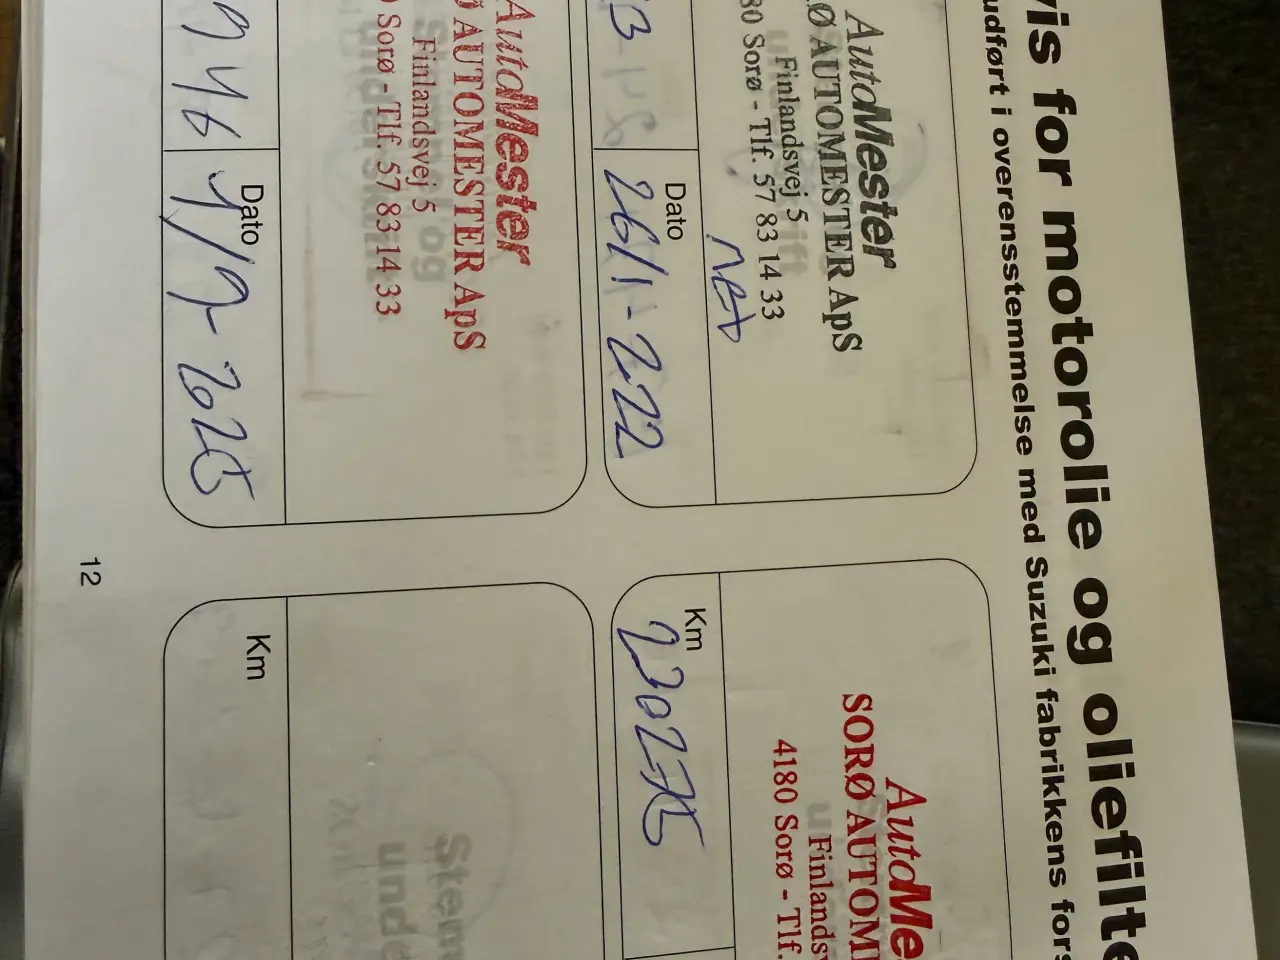 vis for motorolie og oliefilte
udført i overensstemmelse med Suzuki fabrikkens fors
AutoMester
Ø AUTOMESTER ApS
Finlandsvej 5
80 Sorø - Tlf. 57 83 14 33
Dato
26/1-222
AutoMe
SORØ AUTOM
Finlands
4180 Sorø - Tlf.
Km
230275
AutoMester
Ø AUTOMESTER ApS
Finlandsvej 5
Sorø - Tlf. 57 83 14 33
946
Dato
4/9-2025
Km
12